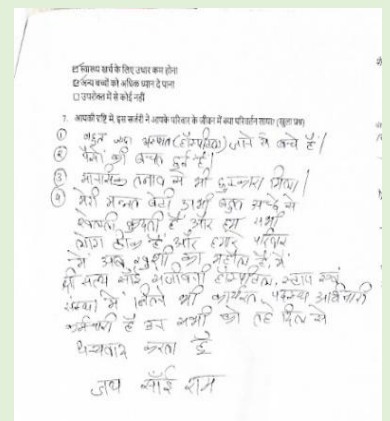 ☑ स्वास्थ्य खर्च के लिए उधार कम होना
☑ अन्य बच्चों को अधिक ध्यान दे पाना
☐ उपरोक्त में से कोई नहीं
7. आपकी दृष्टि में, इस सर्जरी ने आपके परिवार के जीवन में क्या परिवर्तन लाया? (खुला प्रश्न)
① बहुत ज्यादा अस्पताल (हॉस्पीटल) जाने से बचे हैं।
② पैसों की बचत हुई है।
③ मानसिक तनाव से भी छुटकारा मिला।
④ मेरी बेटी अभी बहुत अच्छे से
खेलती कुदती है और हम सभी
लोग ठीक हैं और हमारे परिवार
में अब खुशी का माहौल है। मैं
श्री सत्य साँई संजीवनी हॉस्पीटल,
संस्था में जितने भी कार्यरत अधिकारी
कर्मचारी हैं उन सभी को तह दिल से
धन्यवाद करता हूँ
जय साँई राम